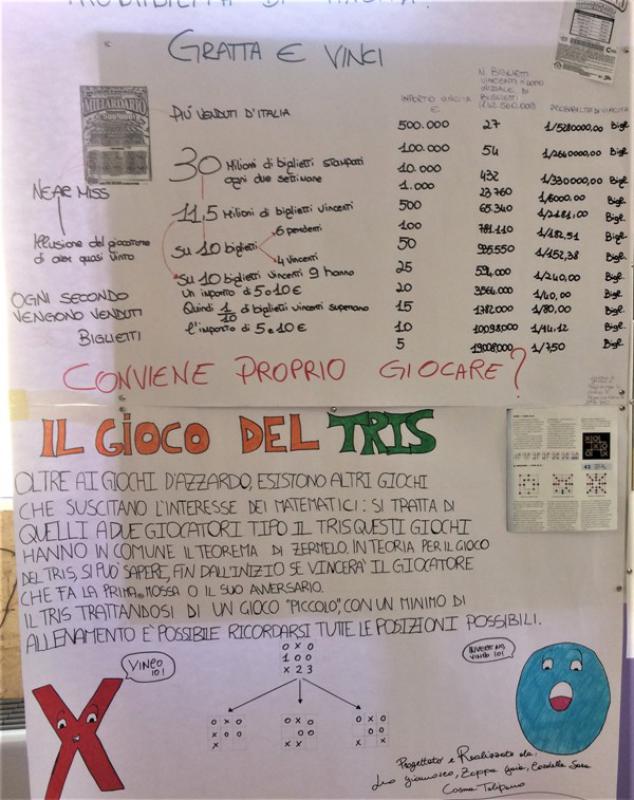 GRATTA E VINCI
PIÙ VENDUTI D'ITALIA
MILIARDARIO
30 Milioni di biglietti stampati
ogni due settimane
11,5 Milioni di biglietti vincenti
su 10 biglietti
6 perdenti
4 vincenti
su 10 biglietti vincenti 9 hanno
un importo di 5 o 10 €
Quindi 1/10 di biglietti vincenti superano
l'importo di 5 e 10 €
NEAR MISS
Illusione del giocatore
di aver quasi vinto
OGNI SECONDO
VENGONO VENDUTI
BIGLIETTI
IMPORTO VINCITA
€
N. BIGLIETTI
VINCENTI
INIZIALE DI
BIGLIETTI
PROBABILITÀ DI VINCITA
500.000 27 1/5280000,00 Bigl.
100.000 54 1/2640000,00 Bigl.
10.000 432 1/330000,00 Bigl.
1.000 23760 1/6000.00 Bigl.
500 65.340 1/2181.00 Bigl.
100 1/182,51 Bigl.
50 1/152,38 Bigl.
25 594.000 1/240,00 Bigl.
20 3564.000 1/40,00 Bigl.
15 1782.000 1/80,00 Bigl.
10 10098000 1/14.12 Bigl.
5 19008000 1/7,50 Bigl.
CONVIENE PROPRIO GIOCARE?
IL GIOCO DEL TRIS
OLTRE AI GIOCHI D'AZZARDO, ESISTONO ALTRI GIOCHI
CHE SUSCITANO L'INTERESSE DEI MATEMATICI: SI TRATTA DI
QUELLI A DUE GIOCATORI TIPO IL TRIS QUESTI GIOCHI
HANNO IN COMUNE IL TEOREMA DI ZERMELO. IN TEORIA PER IL GIOCO
DEL TRIS, SI PUÒ SAPERE, FIN DALL'INIZIO SE VINCERÀ IL GIOCATORE
CHE FA LA PRIMA MOSSA O IL SUO AVVERSARIO.
IL TRIS TRATTANDOSI DI UN GIOCO "PICCOLO", CON UN MINIMO DI
ALLENAMENTO È POSSIBILE RICORDARSI TUTTE LE POSIZIONI POSSIBILI.
VINCO
IO!
O X O
1 O O
X 2 3
O X O
X O O
X
O X O
O O
X X
O X O
O O
X X
INVECE NO
VINCO IO!
Progettato e Realizzato da: